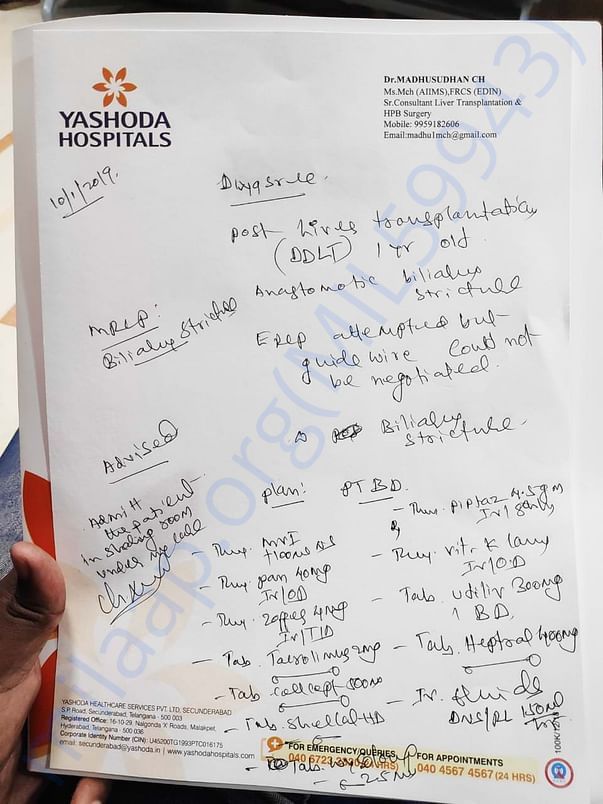 YASHODA
HOSPITALS
Dr.MADHUSUDHAN CH
Ms.Mch (AIIMS),FRCS (EDIN)
Sr.Consultant Liver Transplantation &
HPB Surgery
Mobile: 9959182606
Email:madhu1mch@gmail.com
10/1/2019.
Divyasree.
post liver transplantation
(DDLT) 1 yr old.
Anastomotic biliary
stricture
MRCP:
Biliary stricture
ERCP attempted but
guide wire could not
be negotiated.
Biliary
stricture.
Advised
Admit
the patient
in sharing room
under my call
plan: PTBD.
- Inj. piptaz 4.5gm
- Inj. MVI
+100ml NS
- Inj. vit. K 1amp
IV/OD
- Inj. pan 40mg
IV/OD
- Tab. udiliv 300mg
1 BD.
- Inj. Zofer 4mg
IV/TID
- Tab. Tacrolimus 2mg
- Tab. Heptral 400mg
- Tab. Cellcept 500mg
- IV. fluids
DNS/RL 150ml
- Tab. Shelcal-HD
- Tab.
2.5mg
YASHODA HEALTHCARE SERVICES PVT. LTD, SECUNDERABAD
S.P. Road, Secunderabad, Telangana - 500 003
Registered Office: 16-10-29, Nalgonda 'X' Roads, Malakpet,
Hyderabad, Telangana - 500 036
Corporate Identity Number (CIN): U45200TG1993PTC016175
email: secunderabad@yashoda.in | www.yashodahospitals.com
FOR EMERGENCY/QUERIES
040 6723 HRS)
FOR APPOINTMENTS
040 4567 4567 (24 HRS)
milaap.org(MIL59943)